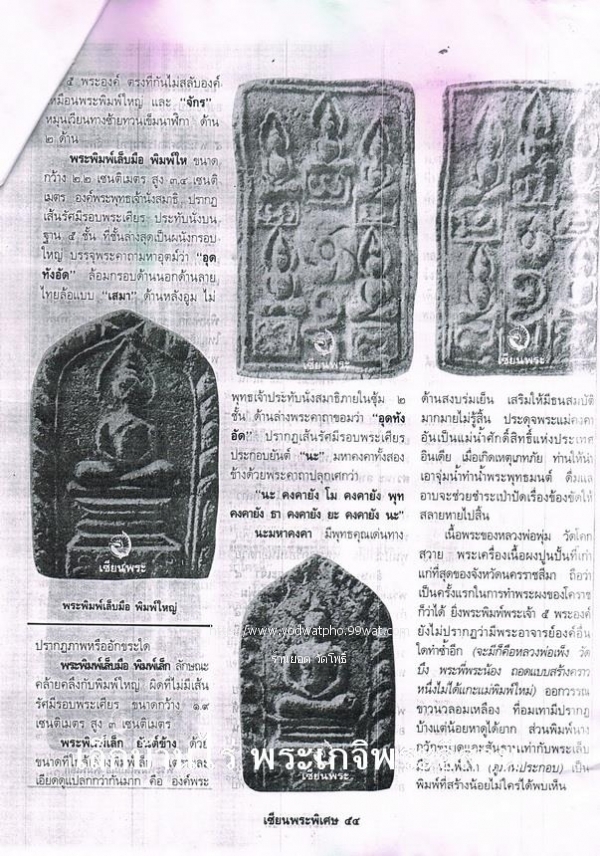 ๕ พระองค์ ตรงที่กันไม่สลับองค์
เหมือนพระพิมพ์ใหญ่ และ "จักร"
หมุนเวียนทางซ้ายทวนเข็มนาฬิกา ด้าน
๒ ด้าน
พระพิมพ์เล็บมือ พิมพ์ให ขนาด
กว้าง ๒.๒ เซนติเมตร สูง ๓.๔ เซนติ
เมตร องค์พระพุทธเจ้านั่งสมาธิ ปรากฏ
เส้นรัศมีรอบพระเศียร ประทับนั่งบน
ฐาน ๕ ชั้น ที่ชั้นล่างสุดเป็นผนังกรอบ
ใหญ่ บรรจุพระคาถามหาอุตม์ว่า "อุด
ทังอัด" ล้อมกรอบด้านนอกด้านลาย
ไทยล้อแบบ "เสมา" ด้านหลังอูม ไม่
พระพิมพ์เล็บมือ พิมพ์ใหญ่
ปรากฏภาพหรืออักขระใด
พระพิมพ์เล็บมือ พิมพ์เล็ก ลักษณะ
คล้ายคลึงกับพิมพ์ใหญ่ ผิดที่ไม่มีเส้น
รัศมีรอบพระเศียร ขนาดกว้าง ๑.๙
เซนติเมตร สูง ๓ เซนติเมตร
พระพิมพ์เล็ก ยันต์ข้าง ด้วย
ขนาดที่
เอียดดูแปลกกว่ากันมาก คือ องค์พระ
เซียนพระ
เซียนพระ
พุทธเจ้าประทับนั่งสมาธิภายในซุ้ม ๒
ชั้น ด้านล่างพระคาถาขอมว่า "อุดทัง
อัด" ปรากฏเส้นรัศมีรอบพระเศียร
ประกอบยันต์ "นะ" มหาคงคาทั้งสอง
ข้างด้วยพระคาถาปลุกเศกว่า
"นะ คงคายัง โม คงคายัง พุท
คงคายัง ธา คงคายัง ยะ คงคายัง นะ"
นะมหาคงคา มีพุทธคุณเด่นทาง
www.yodwatpho.99wat.c
ร้านยอด วัดโพธิ์
เซียนพระ
เซียนพระ
ด้านสงบร่มเย็น เสริมให้มีธนสมบัติ
มากมายไม่รู้สิ้น ประดุจพระแม่คงคา
อันเป็นแม่น้ำศักดิ์สิทธิ์แห่งประเทศ
อินเดีย เมื่อเกิดเหตุเภทภัย ท่านให้นำ
เอาจุ่มน้ำทำน้ำพระพุทธมนต์ ดื่มแล
อาบจะช่วยชำระเป่าปัดเรื่องข้องขัดให้
สลายหายไปสิ้น
เนื้อพระของหลวงพ่อพุ่ม วัดโคก
สวาย พระเครื่องเนื้อผงปูนปั้นที่เก่า
แก่ที่สุดของจังหวัดนครราชสีมา ถือว่า
เป็นครั้งแรกในการทำพระผงของโคราช
ก็ว่าได้ ยิ่งพระพิมพ์พระเจ้า ๕ พระองค์
ยังไม่ปรากฏว่ามีพระอาจารย์องค์อื่น
ใดทำซ้ำอีก (จะมีก็คือหลวงพ่อเพ็ง วัด
บึง พระพี่พระน้อง ถอดแบบสร้างคราว
หนึ่งไม่ได้แกะแม่พิมพ์ใหม่) ออกวรรณ
ขาวนวลอมเหลือง ที่อมเทามีปรากฏ
บ้างแต่น้อยหาดูได้ยาก ส่วนพิมพ์นาง
เท่ากับพระเล็บ
เป็น
พิมพ์ที่สร้างน้อยไม่ใคร่ได้พบเห็น
พระเกจิพ
เซียนพระพิเศษ ๕๕